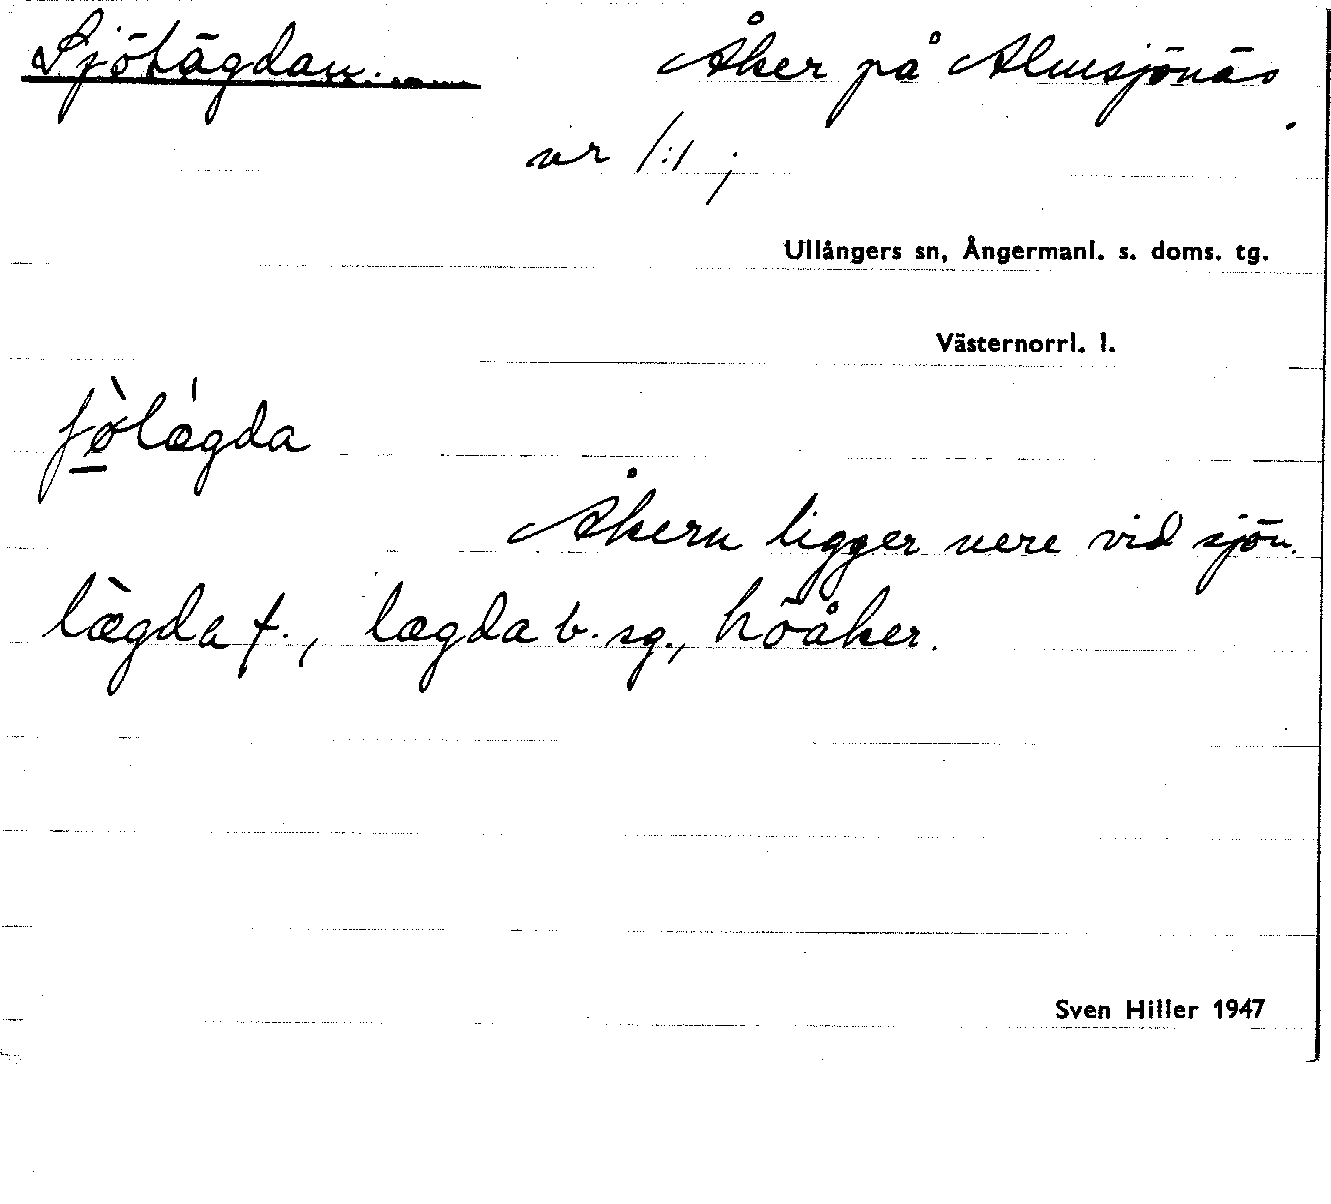 Sjölägdan. Åker på Almsjönäs
nr 1:1 ;
Ullångers sn, Ångermanl. s. doms. tg.
Västernorrl. l.
ʃø̀lǽgda
Åkern ligger nere vid sjön.
læ̀gda f., lægda b. sg., höåker.
Sven Hiller 1947